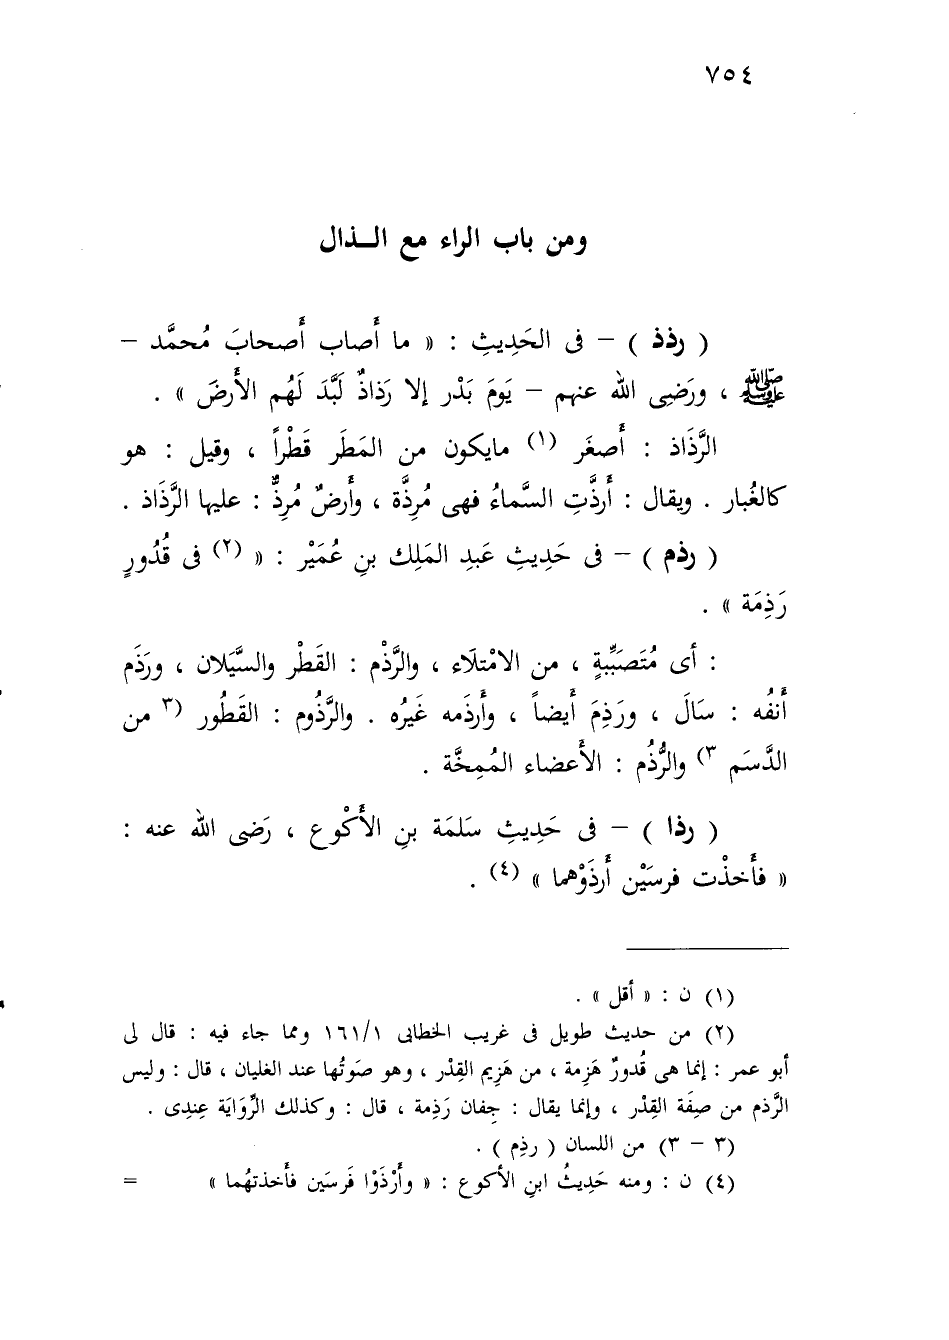 ٧٥٤
ومن باب الراء مع الـــذال
( رذذ ) – فى الحَدِيثِ : « ما أَصاب أَصحابَ مُحمَّد –
ﷺ ، ورَضِى الله عنهم – يَومَ بَدْر إلا رَذاذٌ لَبَّدَ لَهُم الأَرضَ » .
الرَّذَاذ : أَصغَر (١) مايكون من المَطَر قَطْراً ، وقيل : هو
كالغُبار . ويقال : أَرذَّتِ السَّماءُ فهى مُرِذَّة ، وأَرضٌ مُرِذٌّ : عليها الرَّذَاذ .
( رذم ) – فى حَدِيثِ عَبدِ المَلِك بنِ عُمَيْر : « (٢) فى قُدُورٍ
رَذِمَة » .
: أى مُتَصَبِّبةٍ ، من الامْتلَاء ، والرَّذْم : القَطْر والسَّيَلان ، ورَذَم
أَنفُه : سَالَ ، ورَذِمَ أَيضاً ، وأَرذَمه غَيرُه . والرَّذُوم : القَطُور (٣ من
الدَّسَم ٣) والرُّذُم : الأَعضاء المُمِخَّة .
( رذا ) – فى حَدِيثِ سَلمَة بنِ الأَكْوع ، رَضى الله عنه :
« فأَخذْت فرسَيْن أَرذَوْهما » (٤) .
(١) ن : « أقل » .
(٢) من حديث طويل فى غريب الخطابى ١٦١/١ ومما جاء فيه : قال لى
أبو عمر : إنما هى قُدورٌ هَزِمة ، من هَزِيم القِدْر ، وهو صَوتُها عند الغليان ، قال : وليس
الرَّذم من صِفَة القِدْر ، وإنما يقال : جِفان رَذِمة ، قال : وكذلك الرِّوَاية عِندِى .
(٣ – ٣) من اللسان ( رذم ) .
(٤) ن : ومنه حَدِيثُ ابنِ الأكوع : « وأَرْذَوْا فَرسَين فأَخذتهُما » =